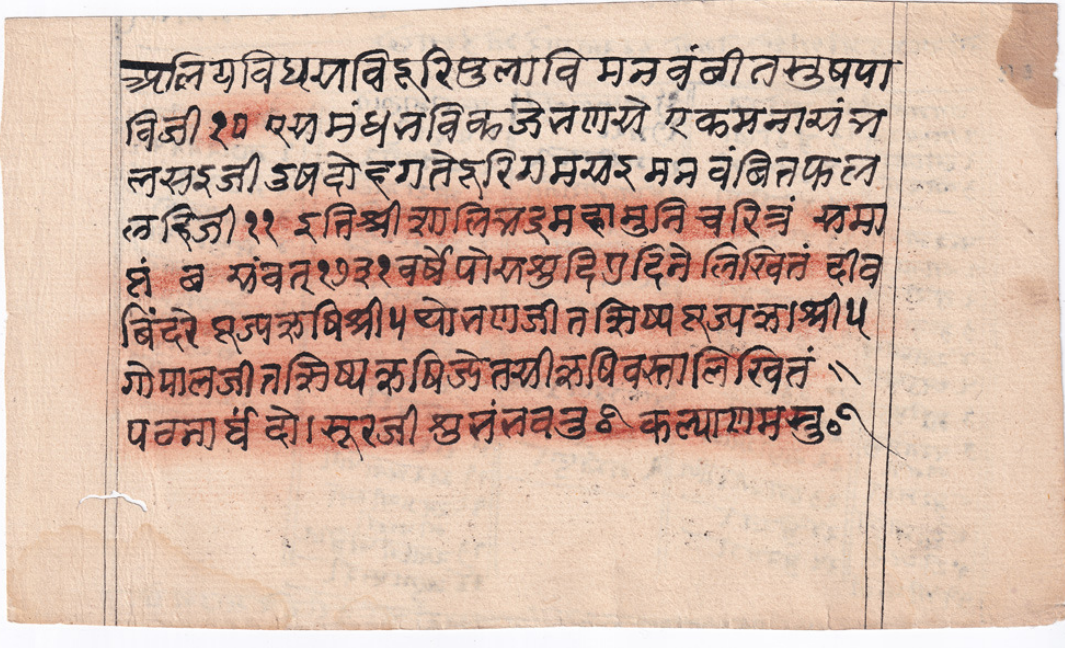 अलियविघनसविदूरिपुलावि मनवंछीतसुषपा
विजी १० एसमंधनविकजेनणसे एकमनासंत्र
लसइजी दुषदोहगतेदूरिगमसइ मनवंछितफल
लहिजी ११ इतिश्रीशालिभद्रमहामुनिचरित्रं समा
प्तं ब संवत् १७३१ वर्षे पोसशुदि ए दिने लिखितं दीव
बिंदरे पूज्यऋषिश्री ५ थोभणजी तत्सिष्य पूज्यऋ।श्री ५
गोपालजी तत्सिष्य ऋषि जेतसीऋषिवस्तालिखितं ॥
पठनार्थं दो। सूरजी शुभंभवतु कल्याणमस्तु